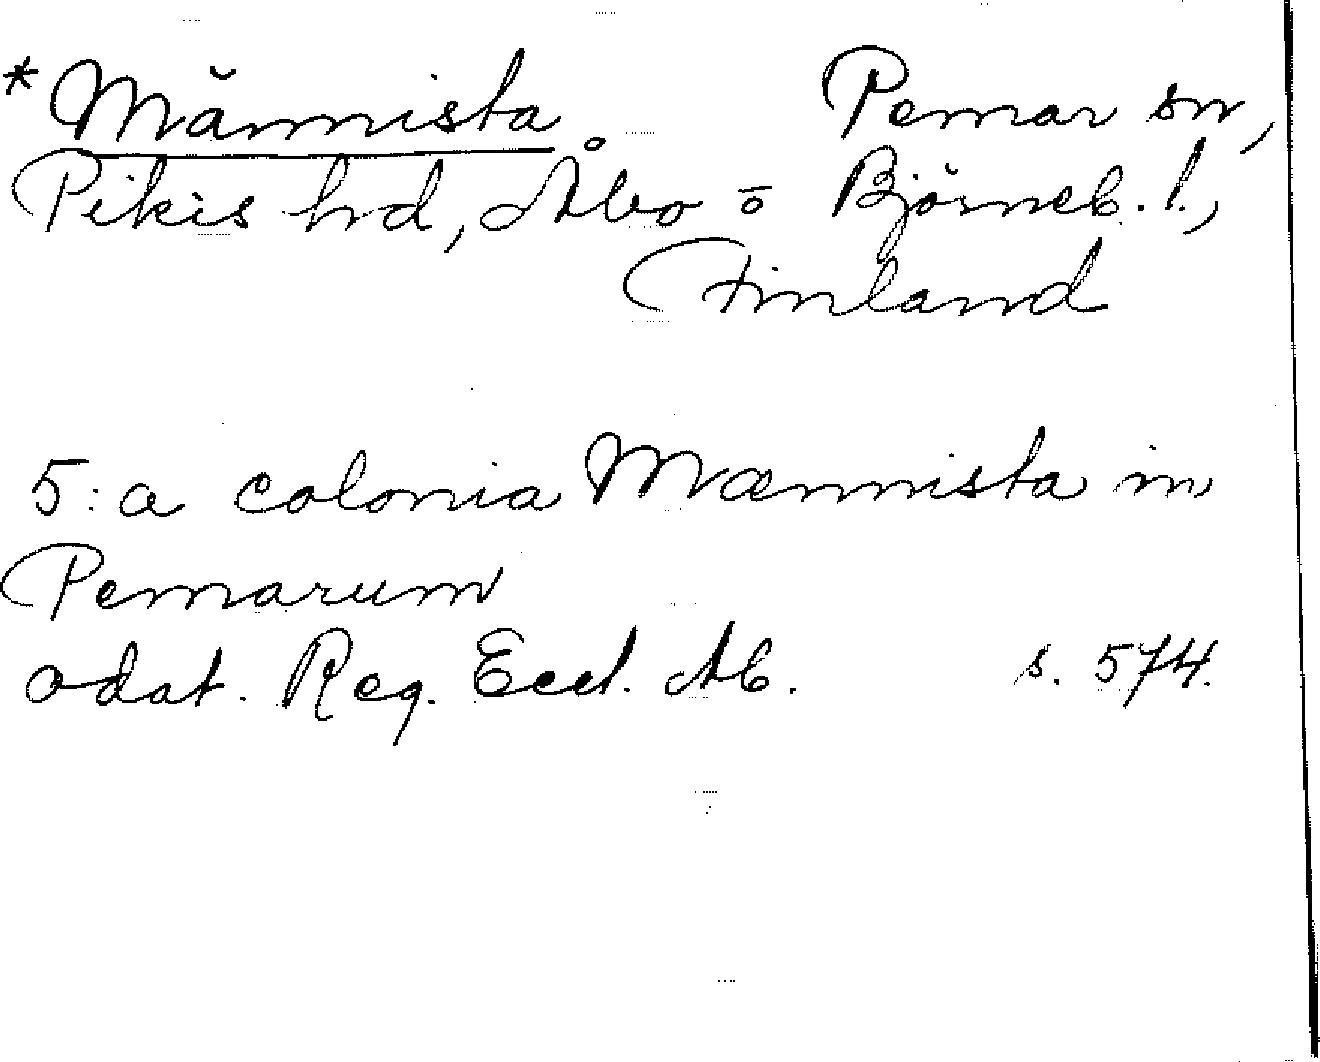 *Männista. Pemar sn,
Pikis hd, Åbo o Björneb. l.,
Finland
5: a colonia Mænnista in
Pemarum
odat. Reg. Eccl. Ab. s. 574.